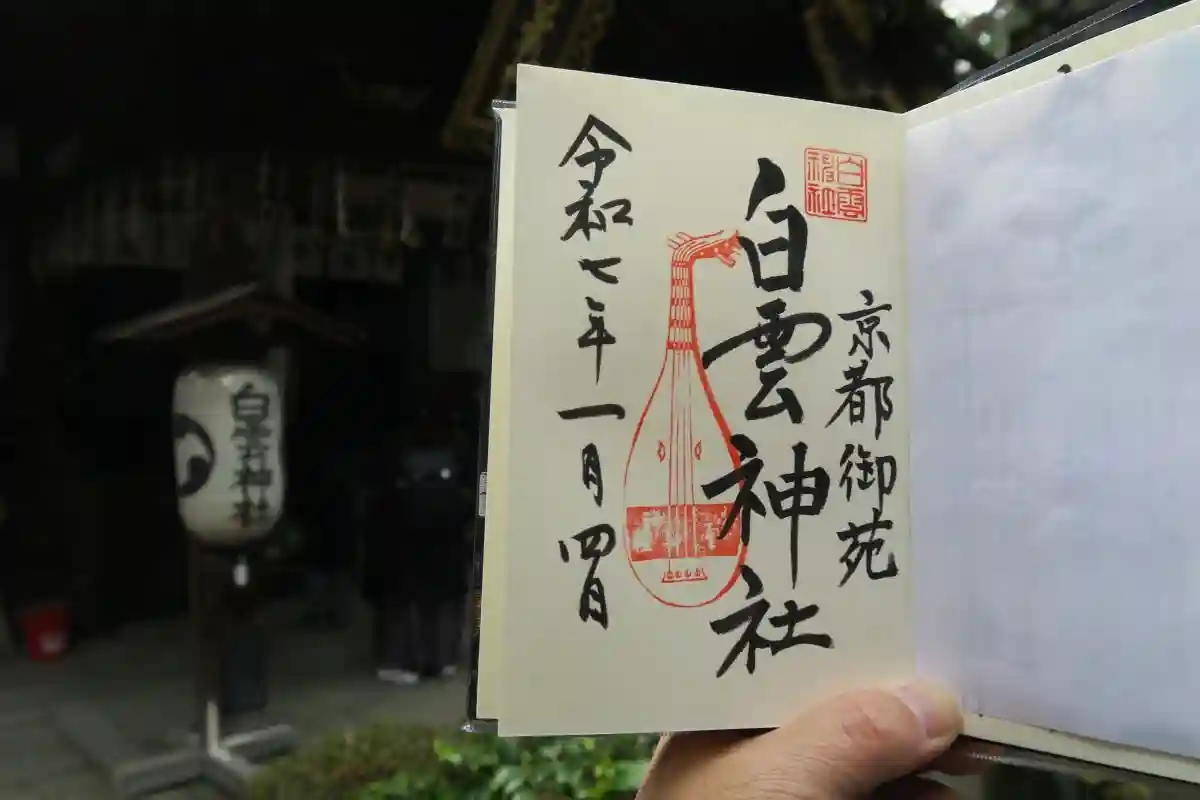 白雲
神社
京都御苑
白雲神社
令和七年一月四日
白雲神社